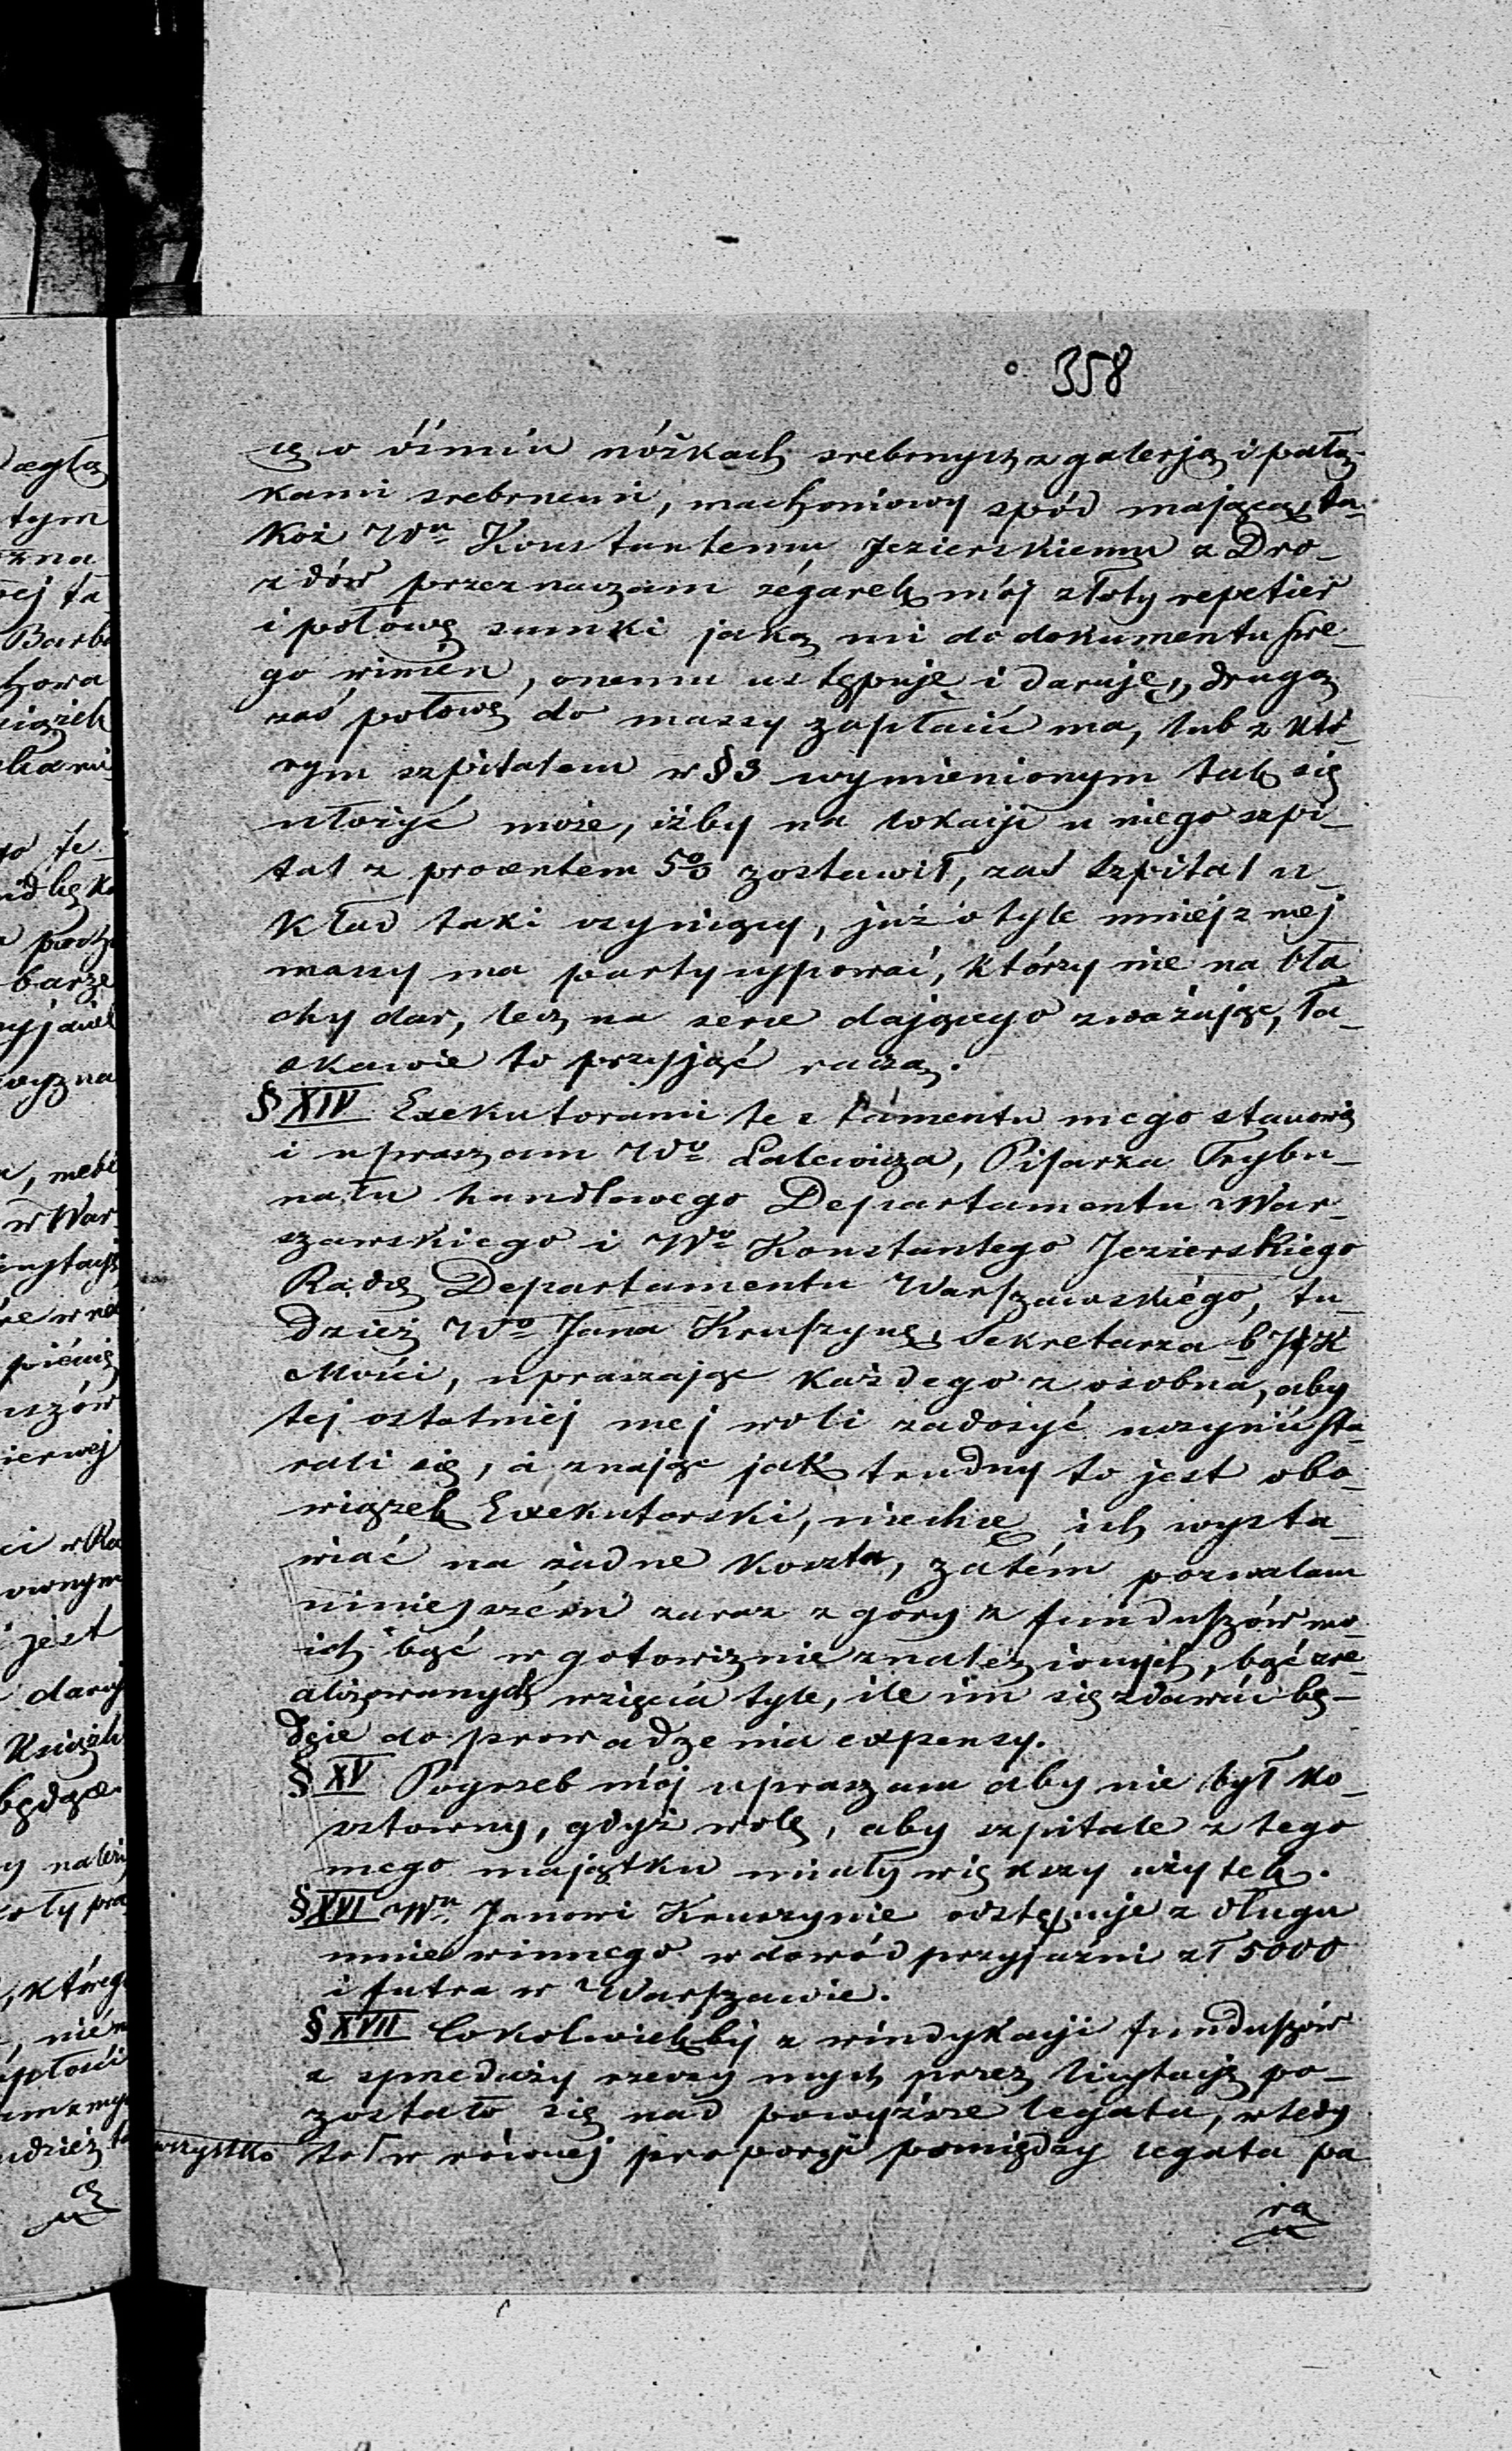 358
cą o óśmiu nóżkach srebrnych z galerją i pałą-
kami srebrnemi, machoniowy spód mającą, ta-
koż Wu Konstantemu Jezierskiemu z Dro-
zdów przeznaczam zégarek mój złoty repetier
i połowę summki jaką mi do dokumentu swe-
go winien, onemu ustępuję i daruję, drugą
zaś połowę do massy zapłacić ma, lub z któ-
rym szpitalem w § 3 wymienionym tak się
ułożyć może, iżby na lokacji u niego szpi-
tal z procentem 5% zostawił, zaś szpital u-
kład taki czyniący, już o tyle mniej z mej
massy ma partycypować, którzy nie na bła
chy dar, lecz na serce dającego zważając, ła-
skawie to przyjąć raczą.
§ XIV Exekutorami testamentu mego stanowię
i upraszam Wo Lalewicza, Pisarza Trybu-
nału handlowego Departamentu War-
szawskiego i Wo Konstantego Jezierskiego
Radcę Departamentu Warszawskiégo, tu-
dzież Wo Jana Kruszynę, Sekretarza b JK
Mości, upraszając każdego z osobna, aby
tej ostatniej mej woli zadosyć uczynić sta-
rali się, a znając jak trudny to jest obo-
wiązek Exekutorski, niechcę ich wysta-
wiać na żadne koszta, zatém pozwalam
niniejszém zaraz z góry z funduszów mo-
ich bąć w gotowiznie znalezionych, bąć zre-
alizowanych wzięcia tyle, ile im się zdawać bę-
dzie do prowadzenia expensy.
§ XV Pogrzeb mój upraszam aby nie był ko-
sztowny, gdyż wolę, aby szpitale z tego
mego majątku miały większy użytek.
§ XVI Wu Janowi Kruszynie odstępuję z długu
mnie winnego w dowód przyjaźni zł 5000
i futra w Warszawie.
§ XVII Cokolwiekby z windykacji funduszów
z sprzedaży rzeczy mych przez licytacją po-
zostało się nad powyższe legata, wtedy
wszystko to w równej proporcji pomiędzy legata pa
ra